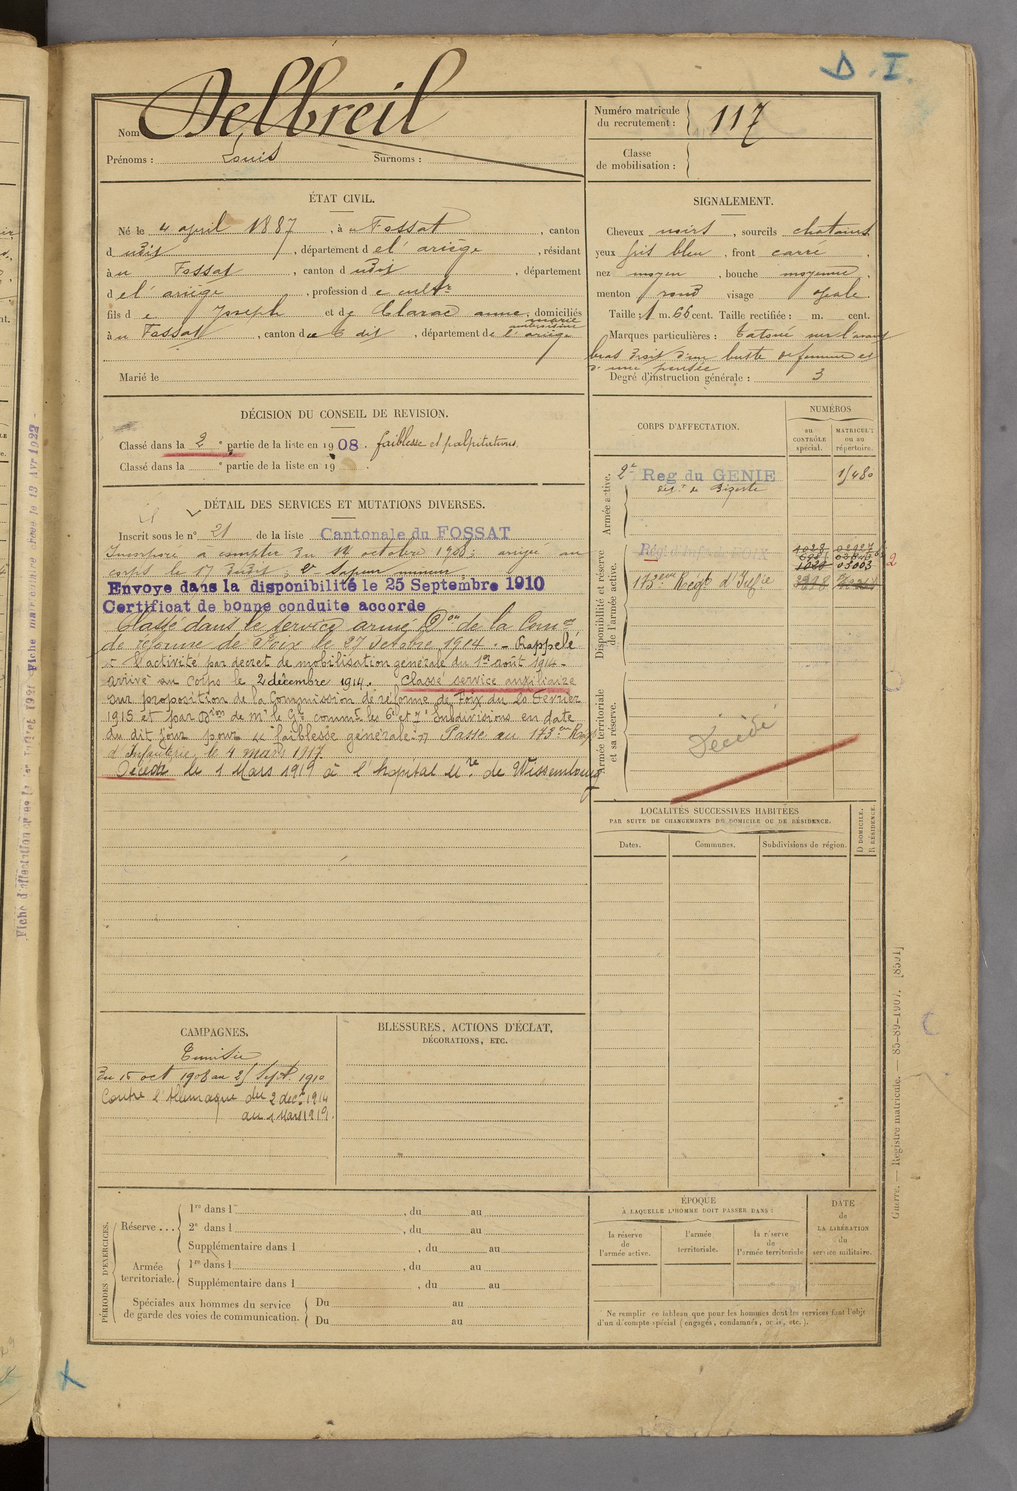 D. I.
Nom Delbreil
Prénoms : Louis Surnoms :
Numéro matricule du recrutement : 117
Classe de mobilisation :
ÉTAT CIVIL.
Né le 4 april 1887, à u Fossat, canton
d udit, département d el'ariège, résidant
à u Fossat, canton d udit, département
d el'ariège, profession d e cultr
fils d e Joseph et d e Clarac anne marie, domiciliés
à u Fossat, canton d u dit, département de l'ariège
Marié le
SIGNALEMENT.
Cheveux noirs, sourcils chatains,
yeux gris bleu, front carré
nez moyen, bouche moyenne,
menton rond visage ovale
Taille : 1 m. 66 cent. Taille rectifiée : m. cent.
Marques particulières : tatoué sur l'avant
bras droit d'un buste de femme et
d'une pensée
Degré d'instruction générale : 3
DÉCISION DU CONSEIL DE REVISION.
Classé dans la 2e partie de la liste en 1908. faiblesse et palpitations
Classé dans la e partie de la liste en 19 .
DÉTAIL DES SERVICES ET MUTATIONS DIVERSES.
Inscrit sous le n° 21 de la liste Cantonale du FOSSAT
Incorporé à compter du octobre 1908; arrivé au
corps le 17 dudit; 2e Sapeur mineur
Envoye dans la disponibilité le 25 Septembre 1910
Certificat de bonne conduite accorde
Classé dans le service armé Don de la Comon
de réforme de Foix le 27 Octobre 1914. - Rappelé
à l'activité par décret de mobilisation générale du 1er août 1914 -
arrivé au corps le 2 décembre 1914. Classé service auxiliaire
sur proposition de la Commission de réforme de Foix du 20 Février
1915 et par Don de Mr le Gal commt les 6e et 7e Subdivisions en date
du dit jour pour "faiblesse générale". Passé au 173eme Regt
d'Infanterie le 4 mars 1917.
Décédé le 1 Mars 1919 à l'hopital Mre de Wissembourg
CORPS D'AFFECTATION.
NUMÉROS
au CONTRÔLE spécial.
MATRICULE ou au répertoire.
Armée active.
2e Reg du GENIE 1480
de Bizerte
Disponibilité et réserve de l'armée active.
Régt d'Infrie de FOIX
1028 03003
173eme Regt d'Infie
Armée territoriale et sa réserve.
Décédé
LOCALITÉS SUCCESSIVES HABITÉES
PAR SUITE DE CHANGEMENTS DE DOMICILE OU DE RÉSIDENCE.
Dates. Communes. Subdivisions de région. D DOMICILE. R RÉSIDENCE.
CAMPAGNES.
Tunisie
Du 15 oct 1908 au 25 Sept. 1910
Contre l'Allemagne du 2 decbre 1914
au 1 Mars 1919.
BLESSURES, ACTIONS D'ÉCLAT,
DÉCORATIONS, ETC.
PÉRIODES D'EXERCICES.
Réserve ... 1re dans l , du au
2e dans l , du au
Supplémentaire dans l , du au
Armée territoriale. 1re dans l , du au
Supplémentaire dans l , du au
Spéciales aux hommes du service de garde des voies de communication. Du au
Du au
ÉPOQUE
À LAQUELLE L'HOMME DOIT PASSER DANS :
la réserve de l'armée active.
l'armée territoriale.
la réserve de l'armée territoriale
DATE de LA LIBÉRATION du service militaire.
Ne remplir ce tableau que pour les hommes dont les services font l'objet
d'un décompte spécial (engagés, condamnés, omis, etc.).
Guerre. — Registre matricule. — 85-89-1907. [8501]